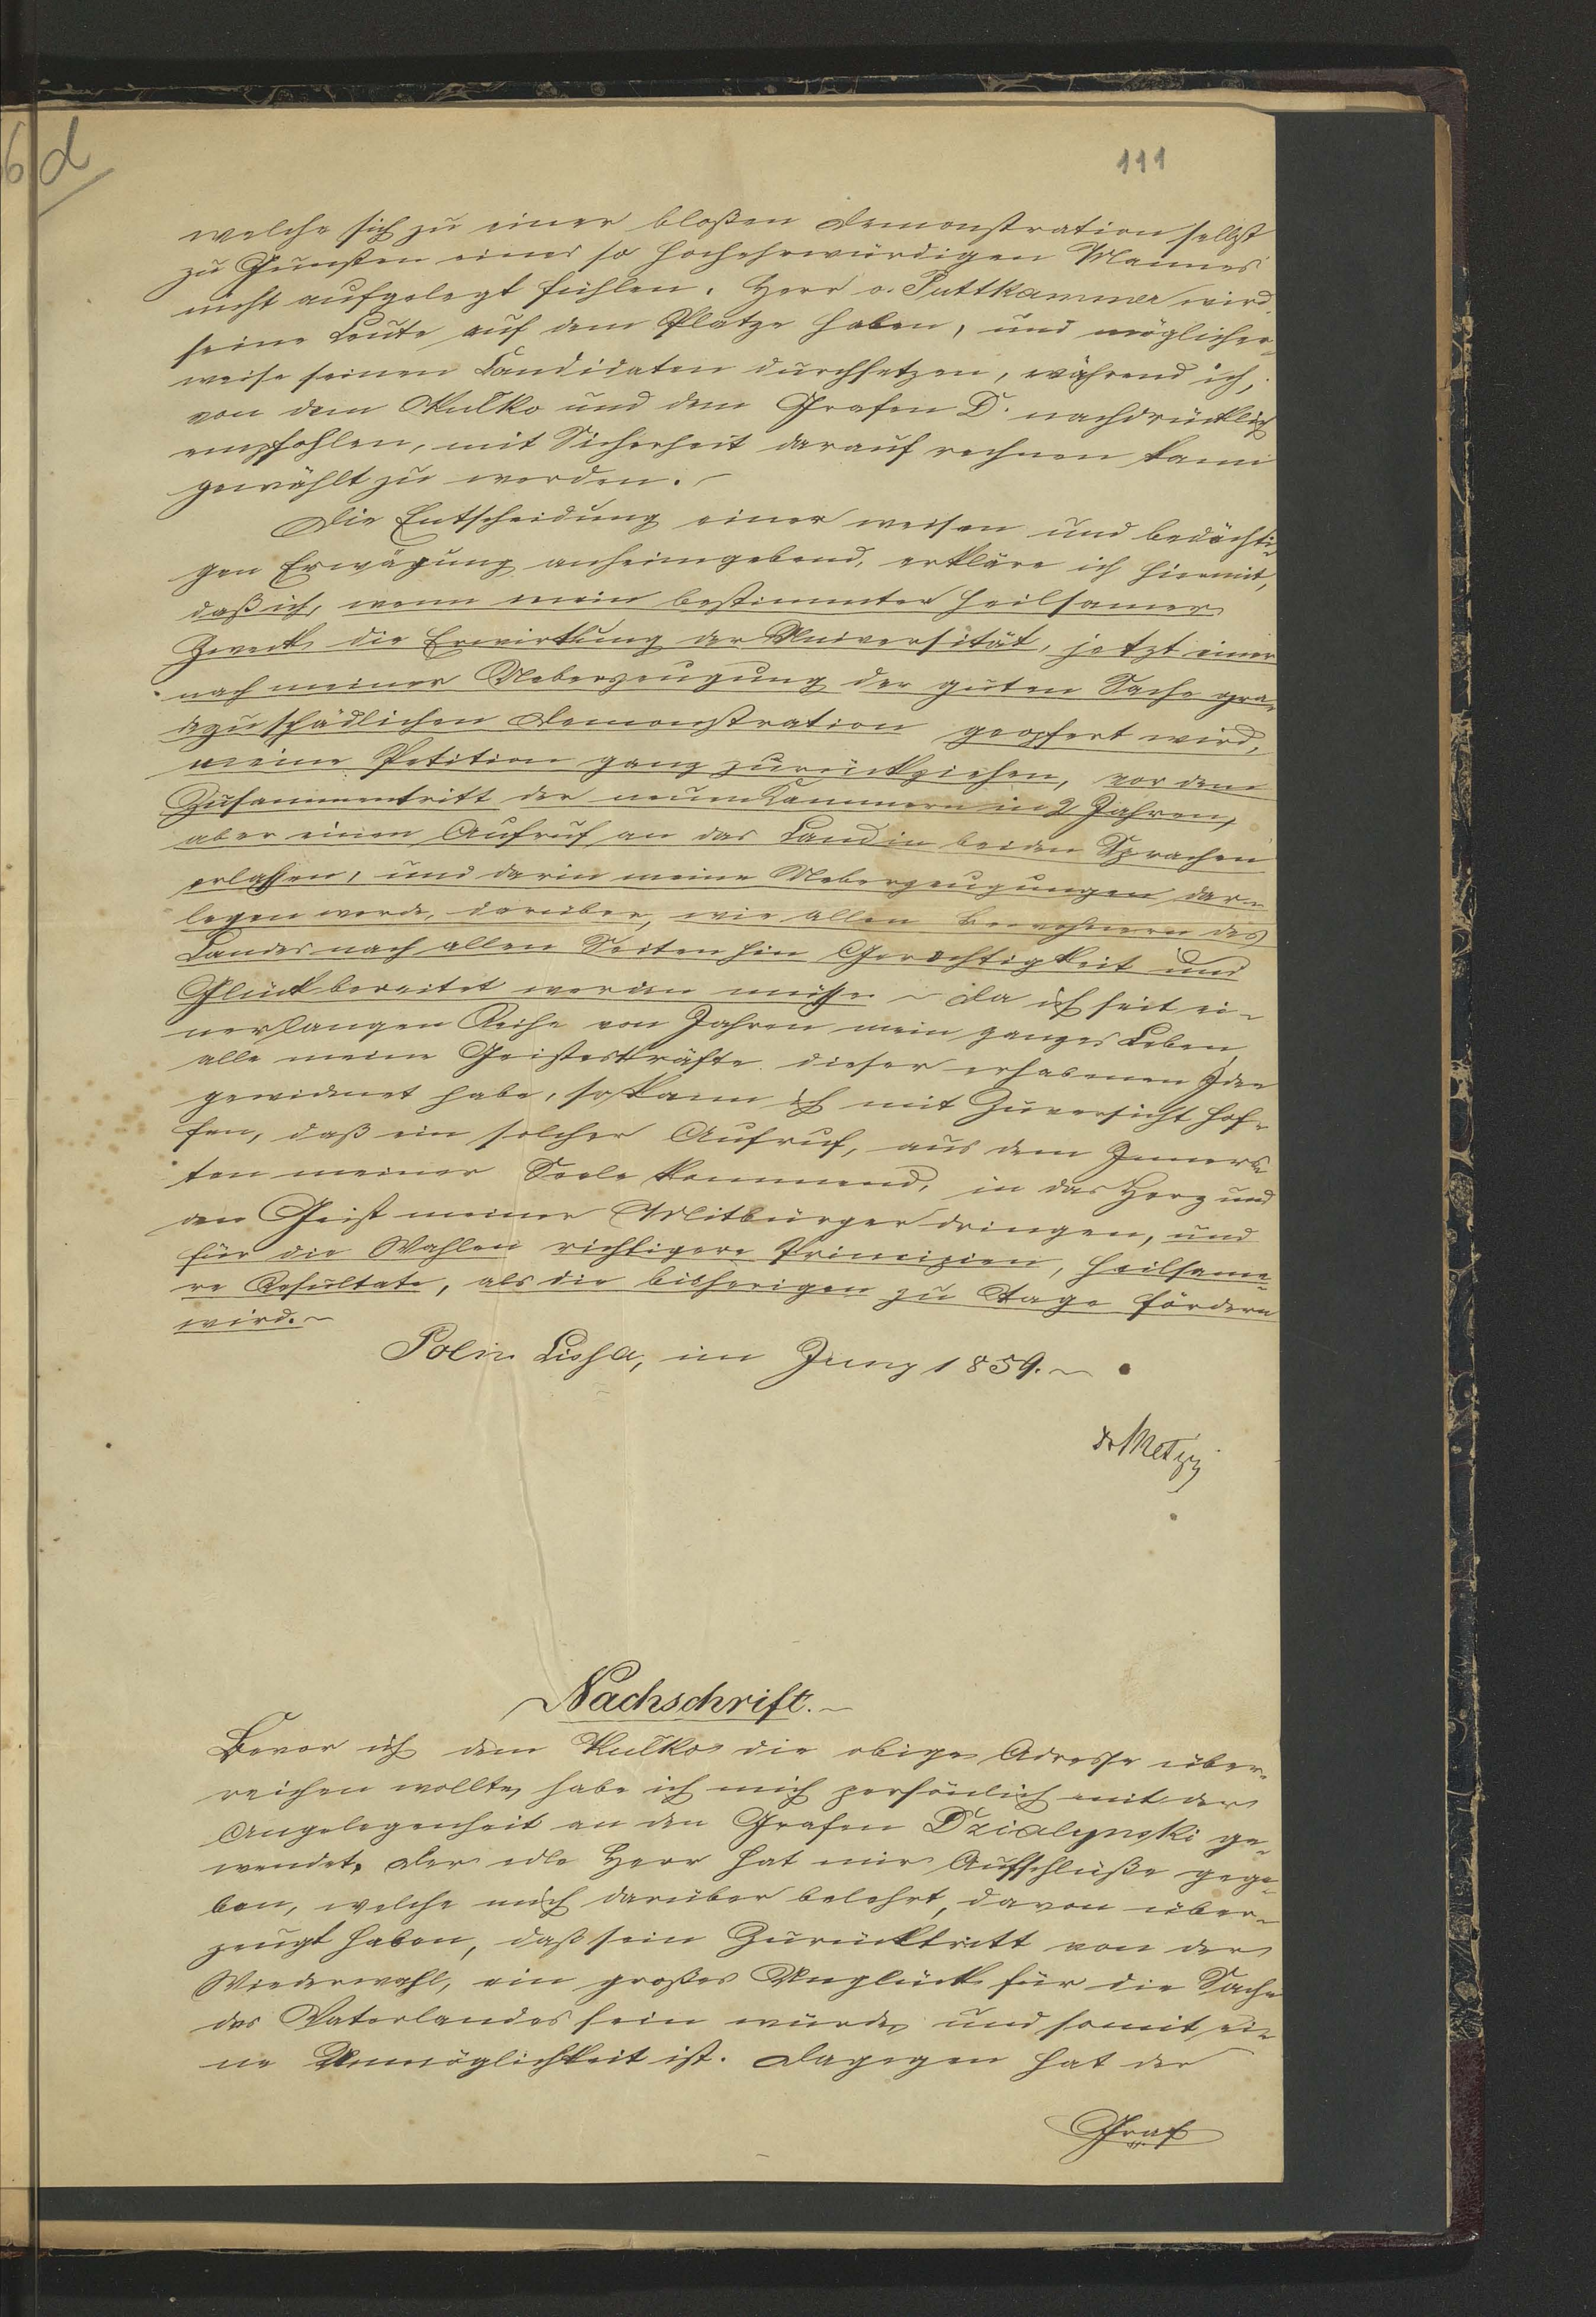 6 d
111
welche sich zu einer bloßen Demonstration selbst
zu Gunsten eines so hochehrwürdigen Mannes
nicht aufgelegt fühlen. Herr v. Puttkammer wird
seine Leute auf dem Platze haben, und möglicher-
weise seinen Candidaten durchsetzen, während ich,
von dem Kułko und dem Grafen D. nachdrücklich
empfohlen, mit Sicherheit darauf rechnen kann
gewählt zu werden. –
Die Entscheidung einer weisen und bedächti-
gen Erwägung anheimgebend, erkläre ich hiermit,
daß ich, wenn mein bestimmter heilsamer
Zweck die Erwirkung der Universität, jetzt einer
nach meiner Ueberzeugung der guten Sache gra-
dezu schädlichen Demonstration geopfert wird,
meine Petition ganz zurückziehen, vor dem
Zusammentritt der neuen Kammern in 2 Jahren,
aber einen Aufruf an das Land in beiden Sprachen
erlassen, und darin meine Ueberzeugungen dar-
legen werde, darüber, wie allen Bewohnern des
Landes nach allen Seiten hin Gerechtigkeit und
Glück bereitet werden müsse – Da ich seit ei-
ner langen Reihe von Jahren mein ganzes Leben,
alle meine Geisteskräfte dieser erhabenen Idee
gewidmet habe, so kann ich mit Zuversicht hof-
fen, daß ein solcher Aufruf, aus dem Inners-
ten meiner Seele kommend, in das Herz und
den Geist meiner Mitbürger dringen, und
für die Wahlen richtigere Principien, heilsame-
re Resultate, als die bisherigen zu Tage fördern
wird. –
Poln. Lissa, im Juny 1859. –
Dr Metzig
Nachschrift. –
Bevor ich dem Kułko die obige Adresse über-
reichen wollte, habe ich mich persönlich mit der
Angelegenheit an den Grafen Dzialynski ge-
wendet. Der edle Herr hat mir Aufschlüße gege-
ben, welche mich darüber belehrt, davon über-
zeugt haben, daß sein Zurücktritt von der
Wiederwahl, ein großes Unglück für die Sache
des Vaterlandes sein würde, und somit ei-
ne Unmöglichkeit ist. Dagegen hat der
Graf